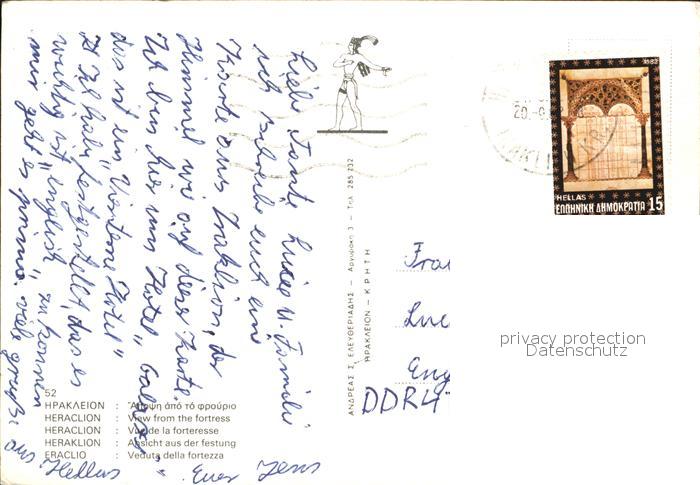 Liebe Tante Luise u. Familie
ich schreibe euch eine
Karte aus Iraklion, der
Himmel wie auf dieser Karte.
Ich bin hier im Hotel „Galaxy"
das ist ein „Viersterne Hotel"
Ich habe festgestellt, das es
wichtig ist „englisch" zu können
mir geht es prima. viele Grüße aus
Hellas Euer Jens
52
ΗΡΑΚΛΕΙΟΝ : Ἄποψη ἀπό τό φρούριο
HERACLION : View from the fortress
HERACLION : Vue de la forteresse
HERAKLION : Ansicht aus der festung
ERACLIO : Veduta della fortezza
ΑΝΔΡΕΑΣ Σ. ΕΛΕΥΘΕΡΙΑΔΗΣ – Αργυράκη 3 – Τηλ. 285 232
ΗΡΑΚΛΕΙΟΝ - ΚΡΗΤΗ
1983
HELLAS
ΕΛΛΗΝΙΚΗ ΔΗΜΟΚΡΑΤΙΑ 15
20.-9
Frau
Lui
Eng
DDR 4
privacy protection
Datenschutz